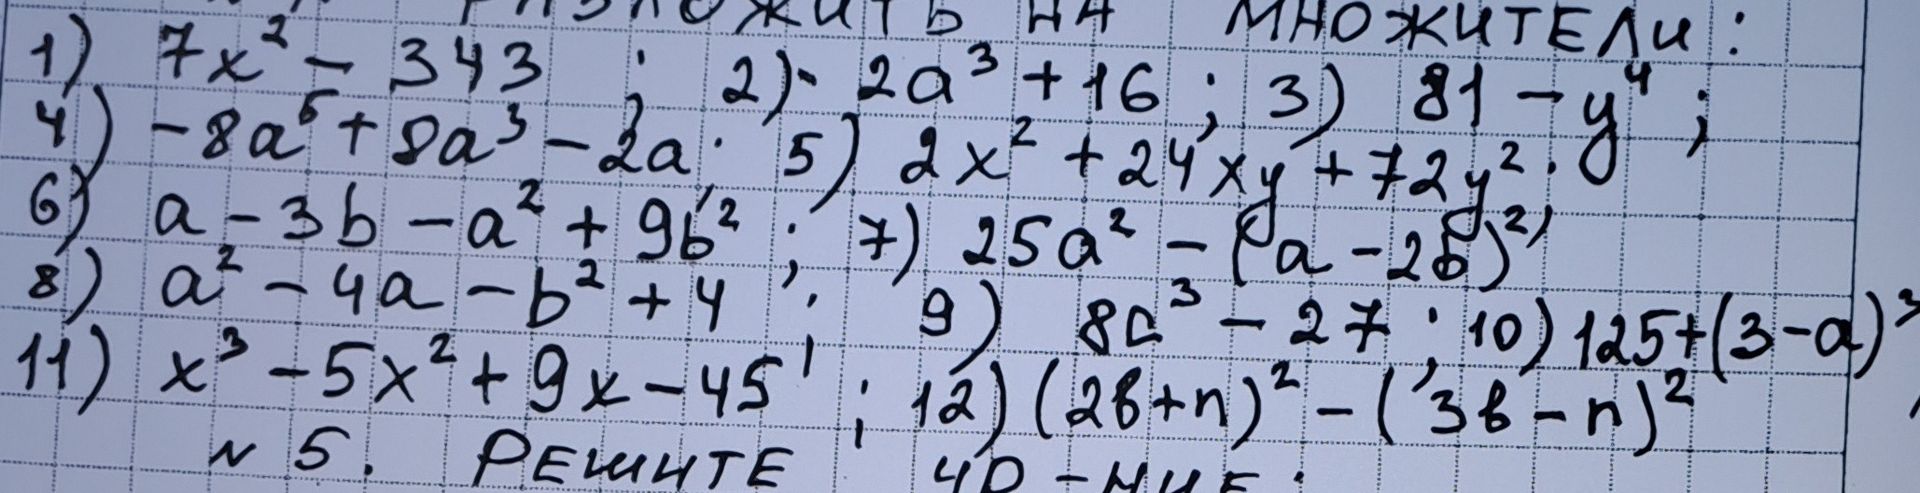 РАЗЛОЖИТЬ НА МНОЖИТЕЛИ:
1) 7x² - 343 ; 2) 2a³ + 16 ; 3) 81 - y⁴ ;
4) -8a⁵ + 8a³ - 2a ; 5) 2x² + 24xy + 72y² ;
6) a - 3b - a² + 9b² ; 7) 25a² - (a - 2b)² ;
8) a² - 4a - b² + 4 ; 9) 8a³ - 27 ; 10) 125 + (3 - a)³
11) x³ - 5x² + 9x - 45 ; 12) (2в + n)² - (3в - n)²
N 5. РЕШИТЕ УР-НИЕ: